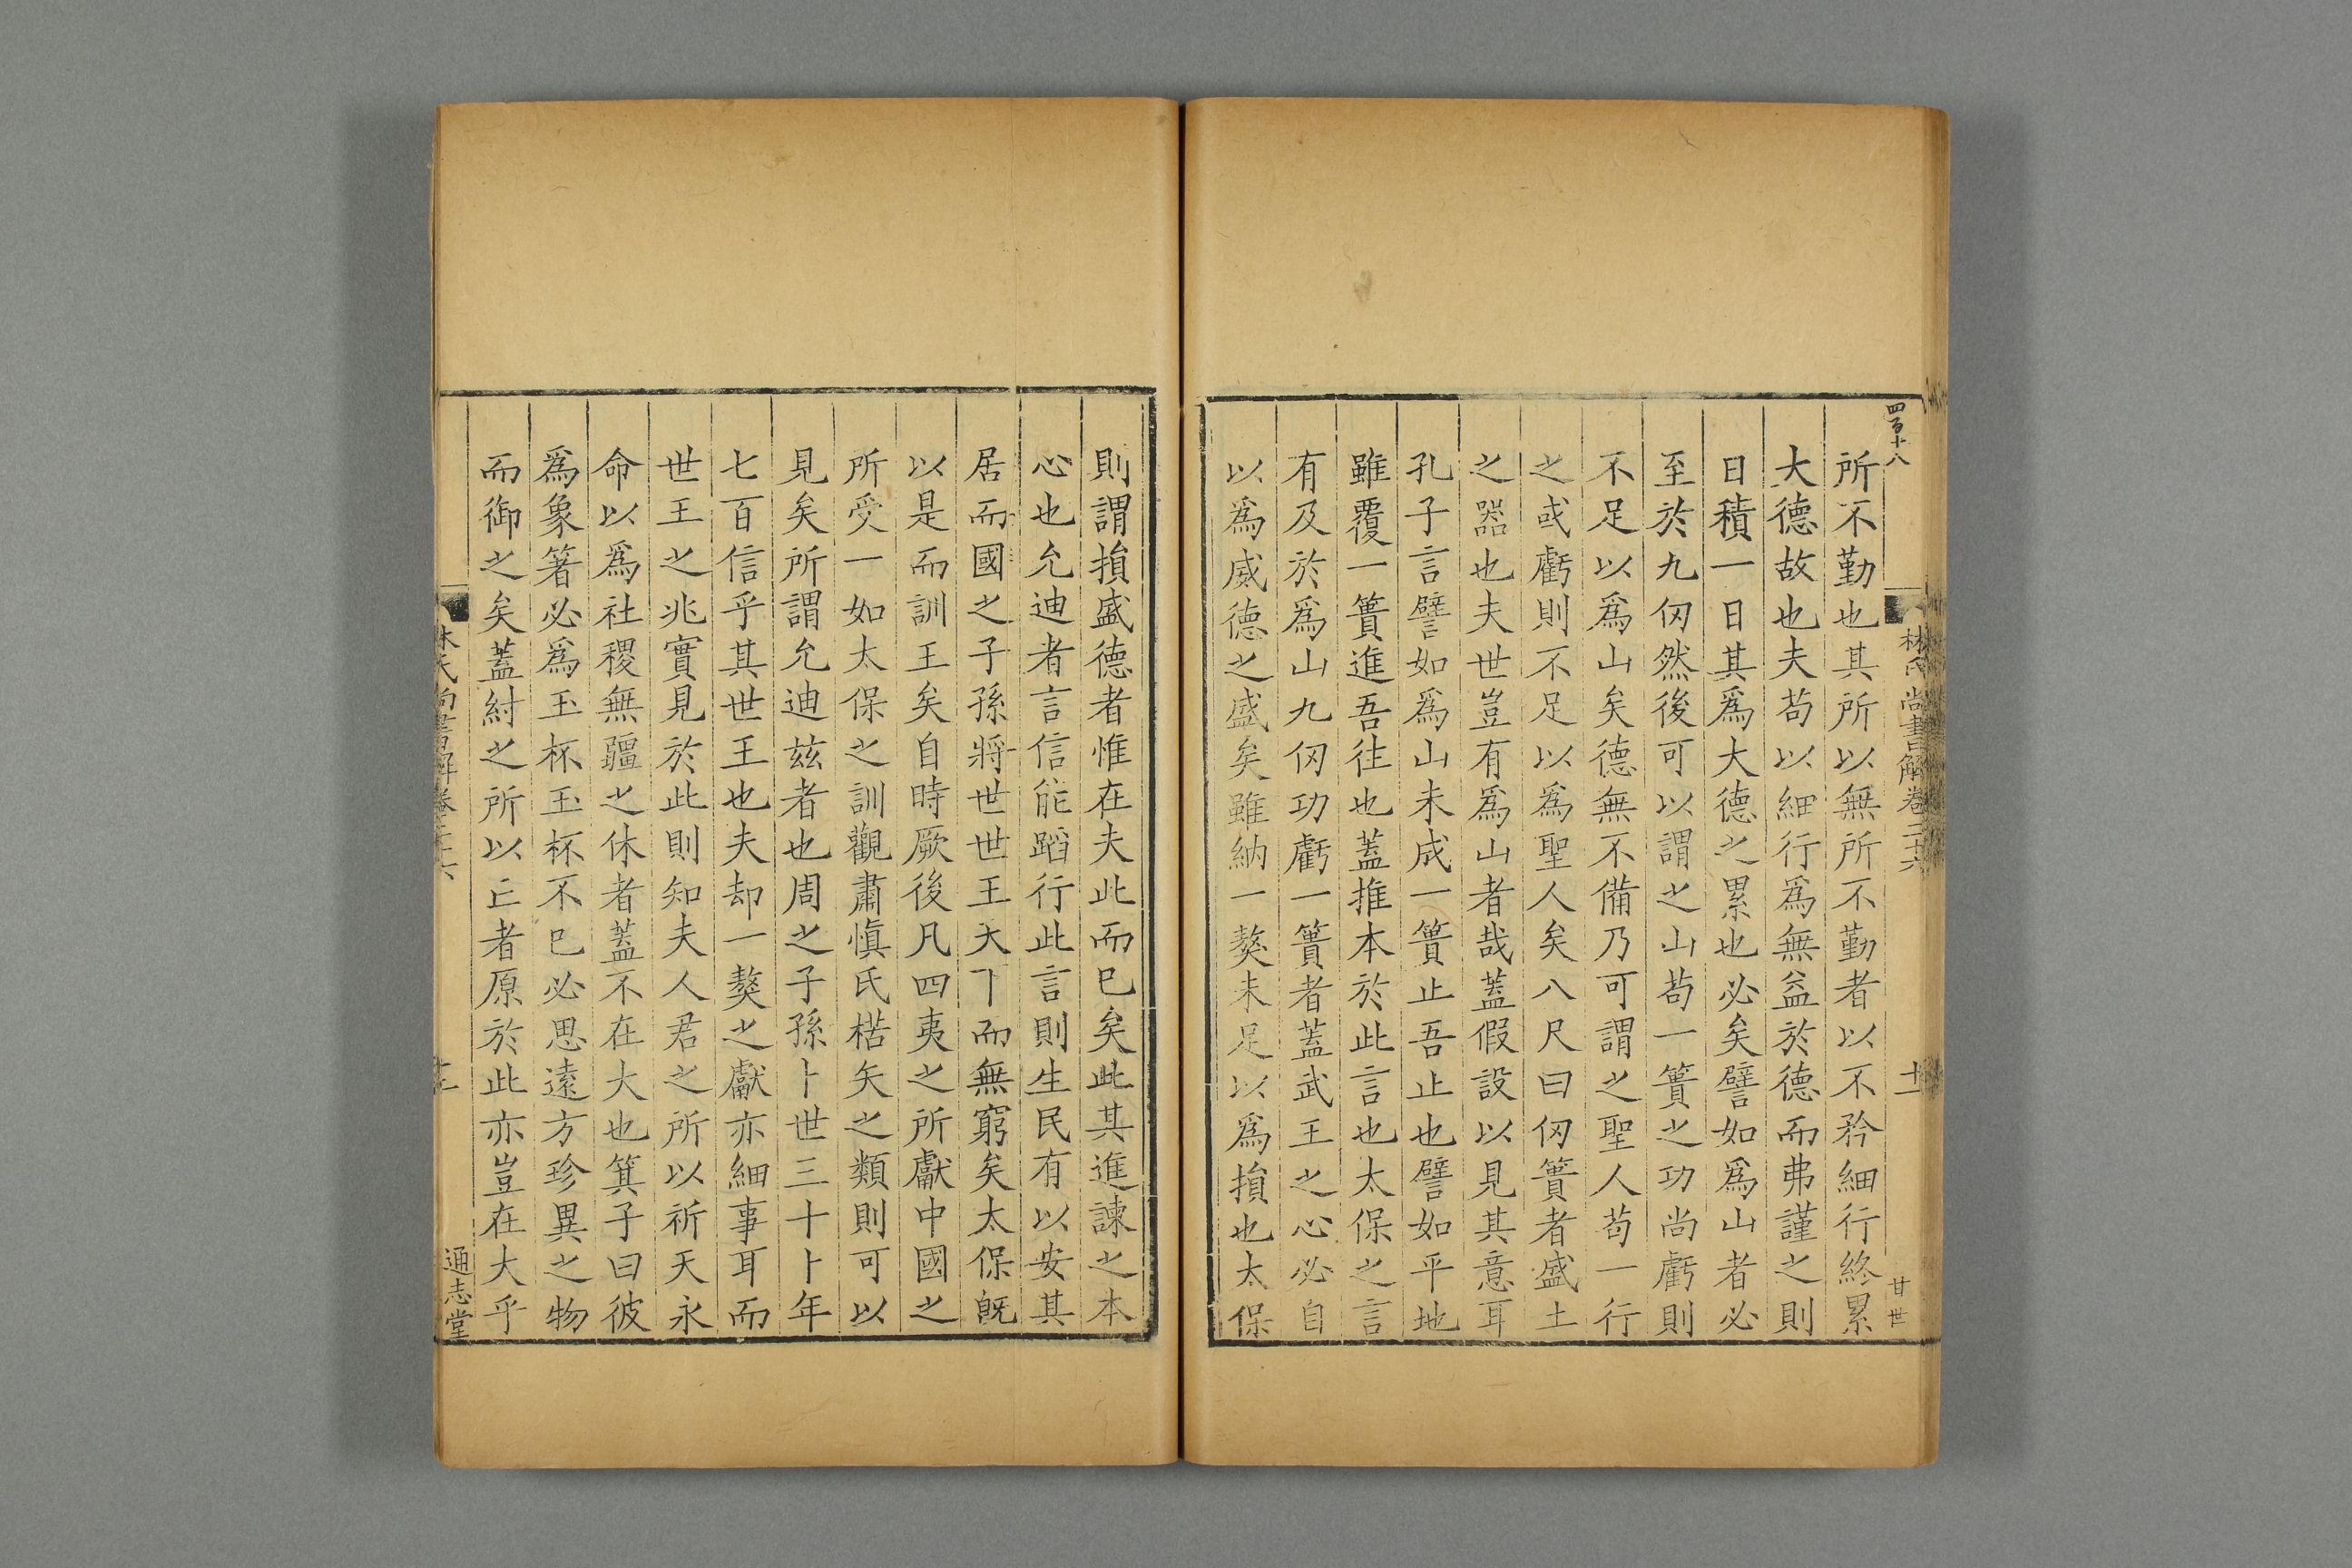 四百十八
林氏尚書解卷二十六
十一
甘世
所不勤也其所以無所不勤者以不矜細行終累
大德故也夫苟以細行爲無益於德而弗謹之則
日積一日其爲大德之累也必矣譬如爲山者必
至於九仞然後可以謂之山苟一簣之功尚虧則
不足以爲山矣德無不備乃可謂之聖人苟一行
之或虧則不足以爲聖人矣八尺曰仞簣者盛土
之器也夫世豈有爲山者哉蓋假設以見其意耳
孔子言譬如爲山未成一簣止吾止也譬如平地
雖覆一簣進吾往也蓋推本於此言也太保之言
有及於爲山九仞功虧一簣者蓋武王之心必自
以爲威德之盛矣雖納一獒未足以爲損也太保
則謂損盛德者惟在夫此而已矣此其進諫之本
心也允迪者言信能蹈行此言則生民有以安其
居而國之子孫將世世王天下而無窮矣太保旣
以是而訓王矣自時厥後凡四夷之所獻中國之
所受一如太保之訓觀肅愼氏楛矢之類則可以
見矣所謂允迪玆者也周之子孫卜世三十卜年
七百信乎其世王也夫却一獒之獻亦細事耳而
世王之兆實見於此則知夫人君之所以祈天永
命以爲社稷無疆之休者蓋不在大也箕子曰彼
爲象箸必爲玉杯玉杯不已必思遠方珍異之物
而御之矣蓋紂之所以亡者原於此亦豈在大乎
林氏尚書解卷二十六
十一
通志堂